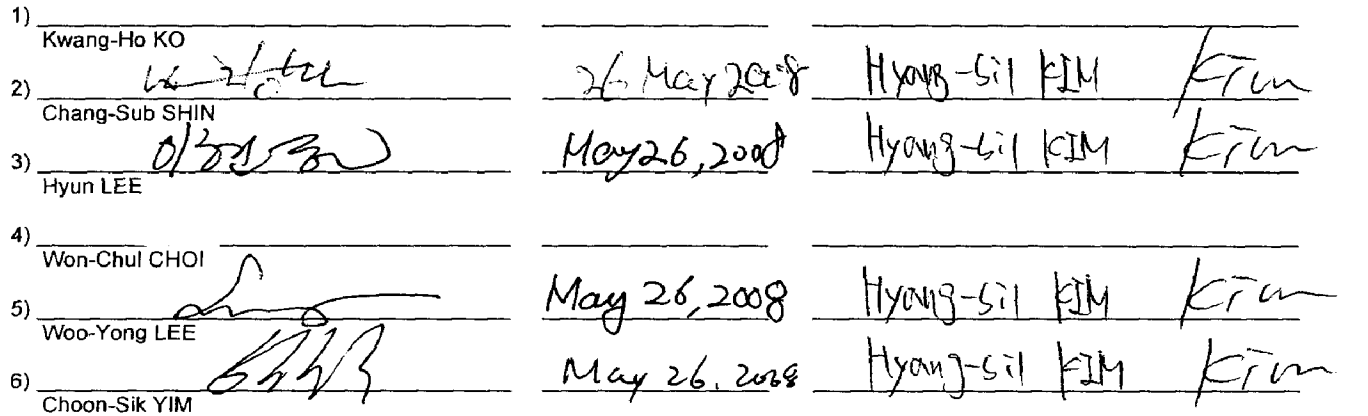 1)
Kwang-Ho KO
2) 26 May 2008 Hyang-Sil KIM Kim
Chang-Sub SHIN
3) May 26, 2008 Hyang-Sil KIM Kim
Hyun LEE
4)
Won-Chul CHOI
5) May 26, 2008 Hyang-Sil KIM Kim
Woo-Yong LEE
6) May 26, 2008 Hyang-Sil KIM Kim
Choon-Sik YIM